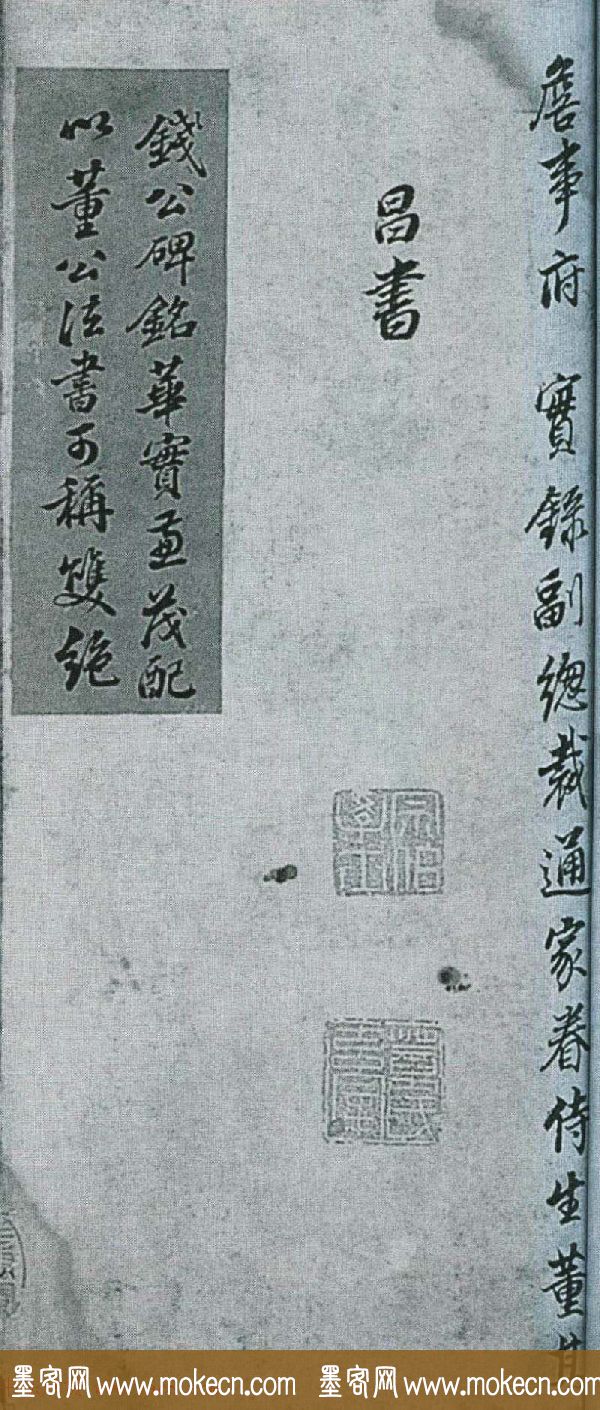 詹事府 實録副總裁通家眷侍生董其
昌書
錢公碑銘華實並茂配
以董公法書可稱雙絕
墨客网 www.mokecn.com 墨客网 www.mokecn.com